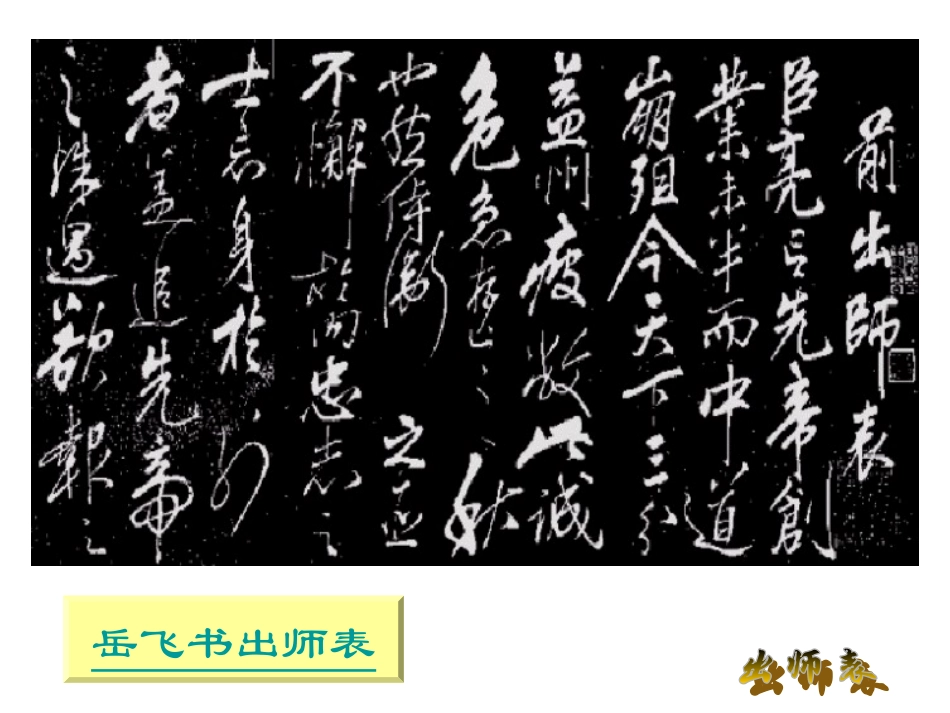 前出師表
臣亮言先帝創
業未半而中道
崩殂今天下三分
益州疲敝此誠
危急存亡之秋
也然侍衛之臣
不懈於內忠志之
士忘身於外
者蓋追先帝
之殊遇欲報之
岳飞书出师表
出师表